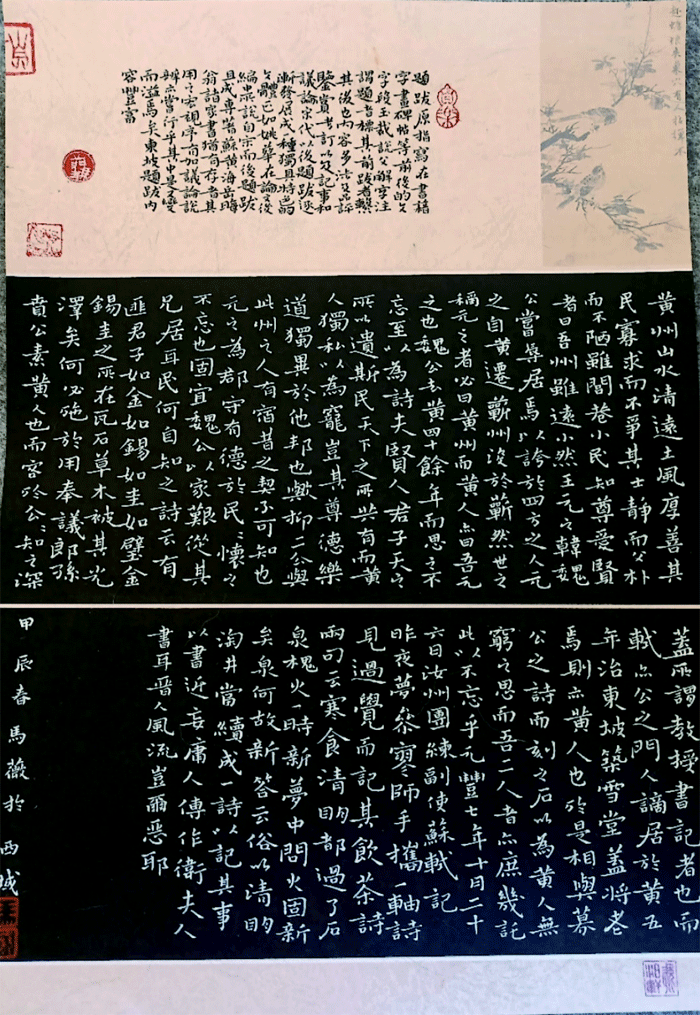 題跋原指寫在書籍
字畫碑帖等前後的文
字段玉裁說文解字注
謂題者標其前跋者繫
其後也內容多涉及品評
鑒賞考訂以及記事和
議論宋代以後題跋逐
漸發展成種獨具特尚的
文體已如姚華在論文後
編中說自宗而後題跋
且成專著蘇黃海岳晦
翁諸家書猶有存者其
用之旁觀序有如議論說
辨亦常行乎其中變
而濫焉矣東坡題跋內
容豐富
黃州山水清遠土風厚善其
民寡求而不爭其士靜而文朴
而不陋雖閭巷小民知尊愛賢
者曰吾州雖遠小然王元之韓魏
公嘗辱居焉以誇於四方之人元
之自黃遷蘄州沒於蘄然世之
稱元之者必曰黃州而黃人亦曰吾元
之也魏公去黃四十餘年而思之不
忘至以為詩夫賢人君子天之
所以遺斯民天下之所共有而黃
人獨私以為寵豈其尊德樂
道獨異於他邦也歟抑二公與
此州之人有宿昔之契不可知也
元之為郡守有德於民民懷之
不忘也固宜魏公以家艱從其
兄居耳民何自知之詩云有
匪君子如金如錫如圭如璧金
錫圭之所在瓦石草木被其光
澤矣何必施於用奉議郎孫
賁公素黃人也而客於公公知之深
蓋所謂教授書記者也而
軾亦公之門人謫居於黃五
年治東坡築雪堂蓋將老
焉則亦黃人也於是相與募
公之詩而刻之石以為黃人無
窮之思而吾二人者亦庶幾託
此以不忘乎元豐七年十月二十
六日汝州團練副使蘇軾記
昨夜夢參寥師手攜一軸詩
見過覺而記其飲茶詩
兩句云寒食清明都過了石
泉槐火一時新夢中問火固新
矣泉何故新答云俗以清明
淘井當續成一詩以記其事
以書近妄庸人傳作衛夫人
書耳晉人風流豈爾惡耶
甲辰春馬薇於西城